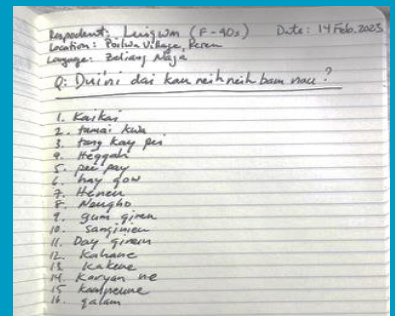 Respondent: Luigwm (F-40s) Date: 14 Feb. 2025
Location: Poilwa Village, Peren
Language: Zeliang Naga
Q: Duini dai kau neih neih bam nau?
1. Kaikai
2. tamai kwa
3. tang kay pei
4. Heggah
5. pei pay
6. hay gow
7. Heneu
8. Neugho
9. gum giren
10. Sanginieu
11. Day girein
12. Kahane
13. Kakene
14. Karyan ne
15. Kampeune
16. galam